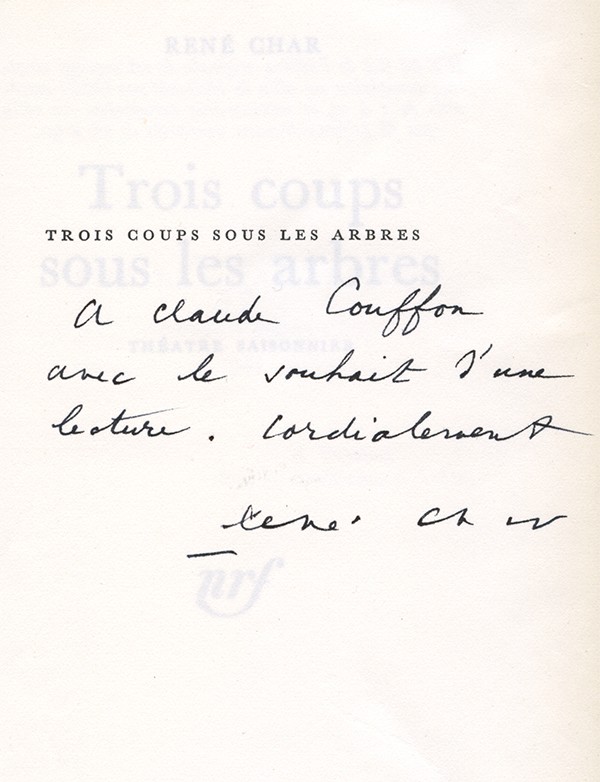 RENÉ CHAR
Trois coups
TROIS COUPS SOUS LES ARBRES
sous les arbres
A Claude Couffon
THÉATRE SAISONNIER
avec le souhait d'une
lecture. Cordialement
René Char
nrf